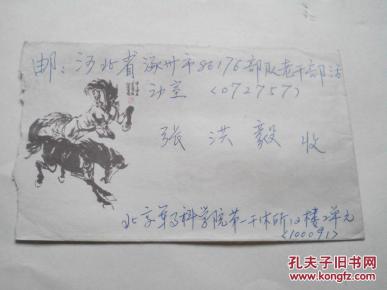 邮：河北省涿州市86176部队老干部活
动室（072757）
张洪毅 收
北京军事科学院第一干休所12楼2单元
（100091）
孔夫子旧书网